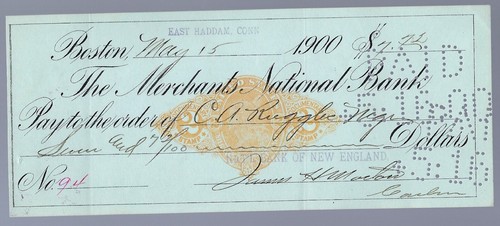 EAST HADDAM, CONN
Boston, May 15 1900 $7.72
The Merchants National Bank
Pay to the order of C. A. Ruggles Mgr
Seven and 72/100 Dollars
NAT'L BANK OF NEW ENGLAND
No. 94
PAID